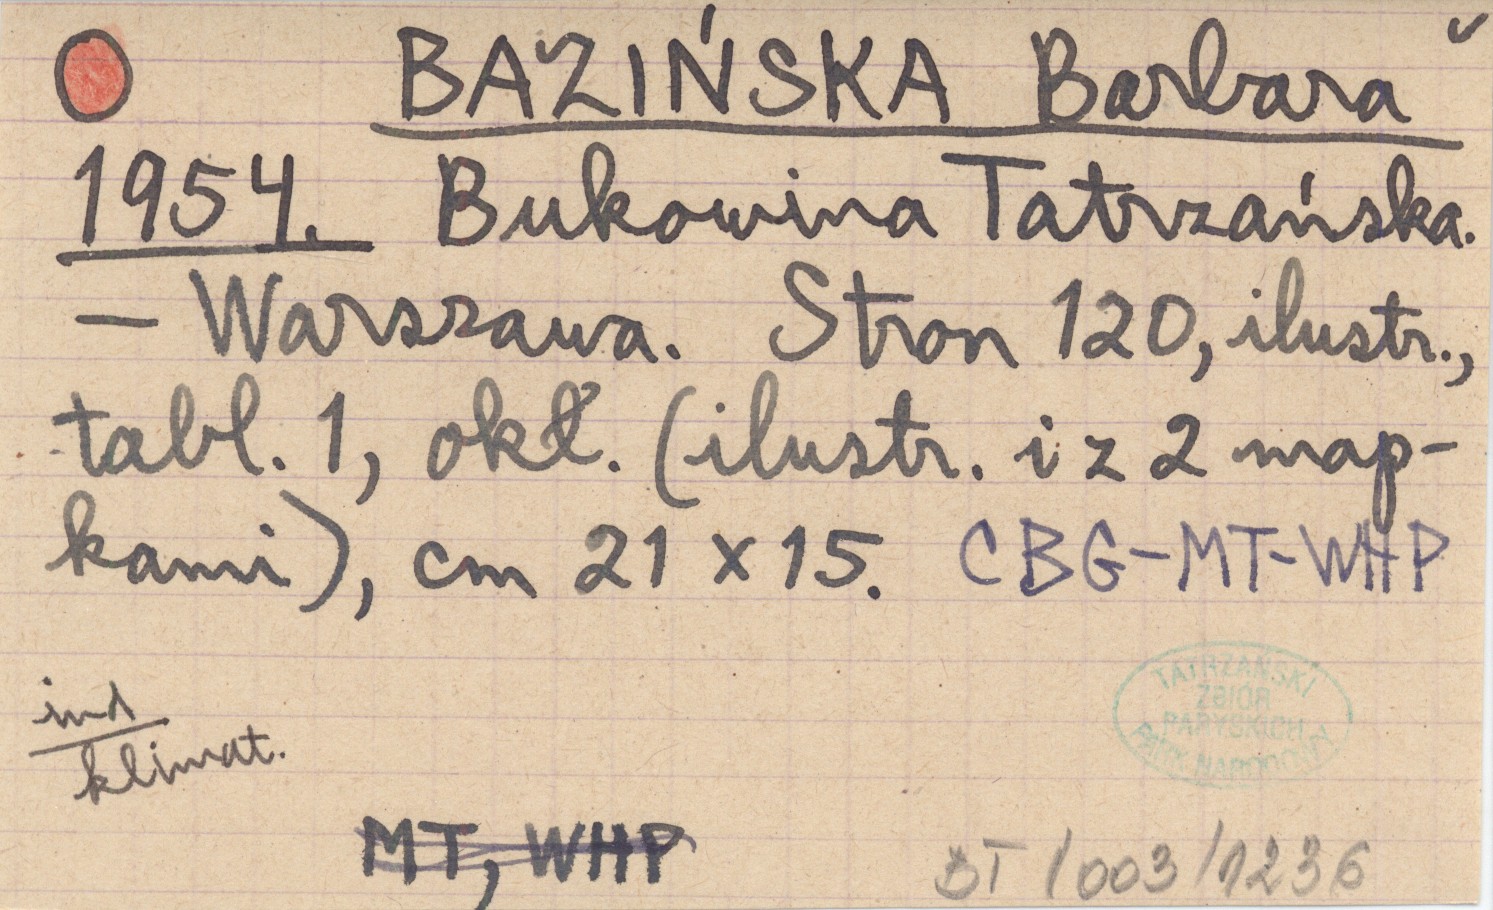 BAZIŃSKA Barbara
1954. Bukowina Tatrzańska.
— Warszawa. Stron 120, ilustr.,
tabl. 1, okł. (ilustr. i z 2 map-
kami), cm 21 x 15. CBG-MT-WHP
TATRZAŃSKI
ZBIÓR
PARYSKICH
PARK NARODOWY
ind
klimat.
MT, WHP
BT/003/1236